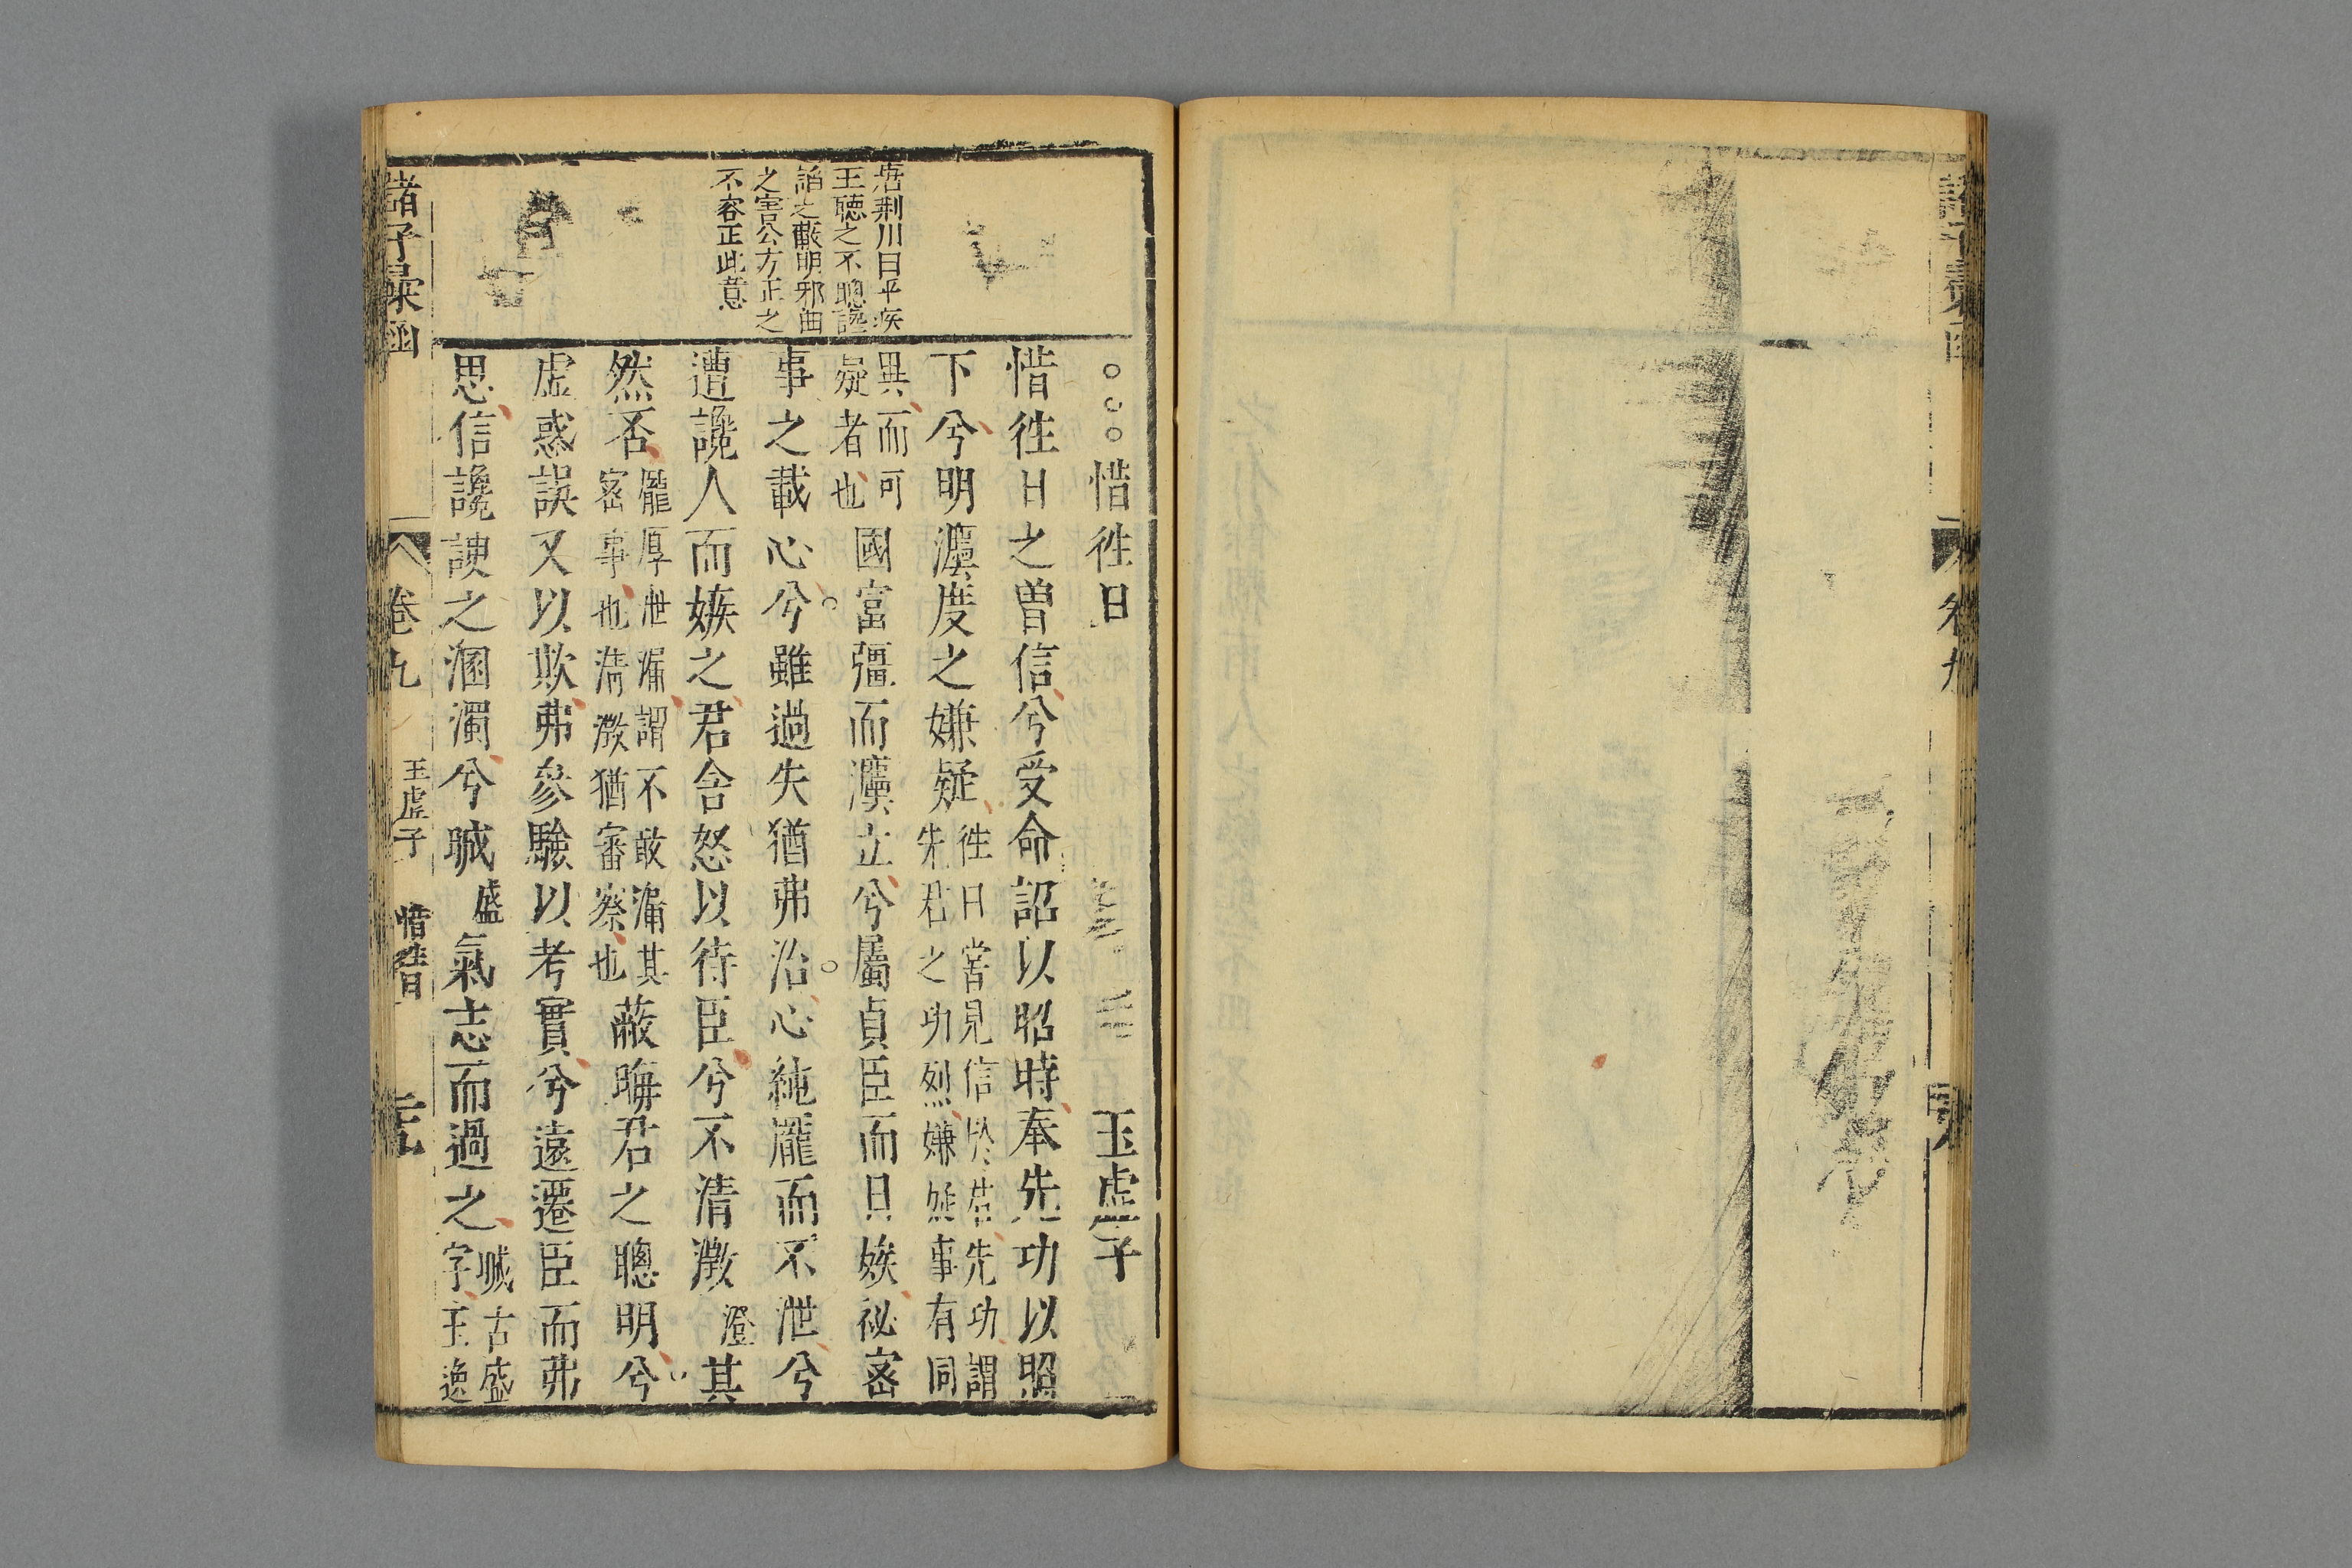 諸子彙函
卷九
○○○惜徃日 玉虛子
惜徃日之曾信兮受命詔以昭時奉先功以照
下兮明灋度之嫌疑
徃日嘗見信於君先功謂
先君之功烈嫌疑事有同
異而可
疑者也
國富彊而灋立兮屬貞臣而日娭祕宻
事之載心兮雖過失猶弗治心純龎而不泄兮
遭讒人而嫉之君含怒以待臣兮不清澂澄其
然否
龎厚泄漏謂不敢漏其
宻事也清澂猶審察也
蔽晦君之聰明兮
虛惑誤又以欺弗參驗以考實兮遠遷臣而弗
思信讒諛之溷濁兮晠盛氣志而過之
晠古盛
字王逸
唐荆川曰平疾
王聽之不聰讒
諂之蔽明邪曲
之害公方正之
不容正此意
諸子彙函
卷九
玉虛子
惜